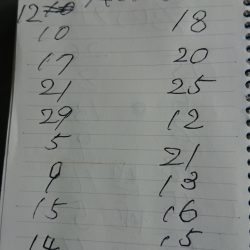 12
10 18
17 20
21 25
29 12
5 21
9 13
15 16
14 15